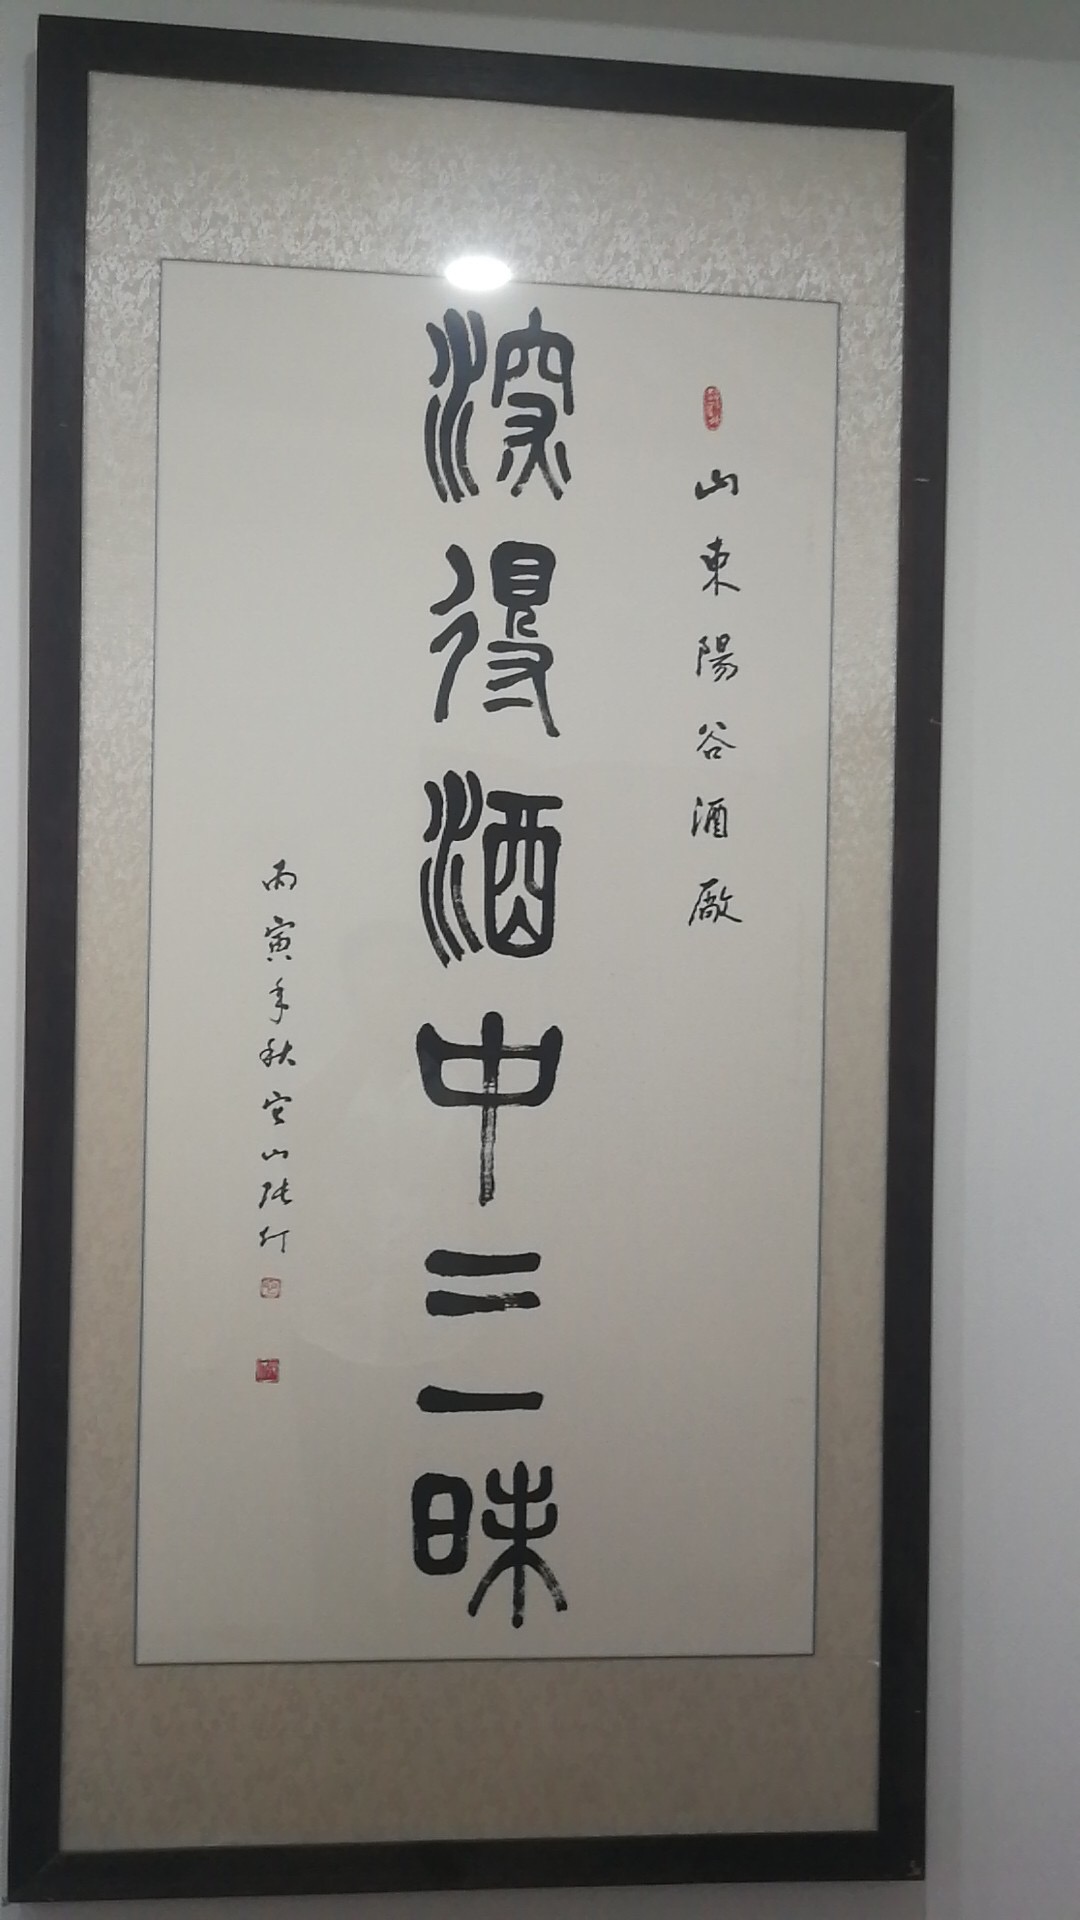 山東陽谷酒厰
深得酒中三昧
丙寅年秋它山張仃